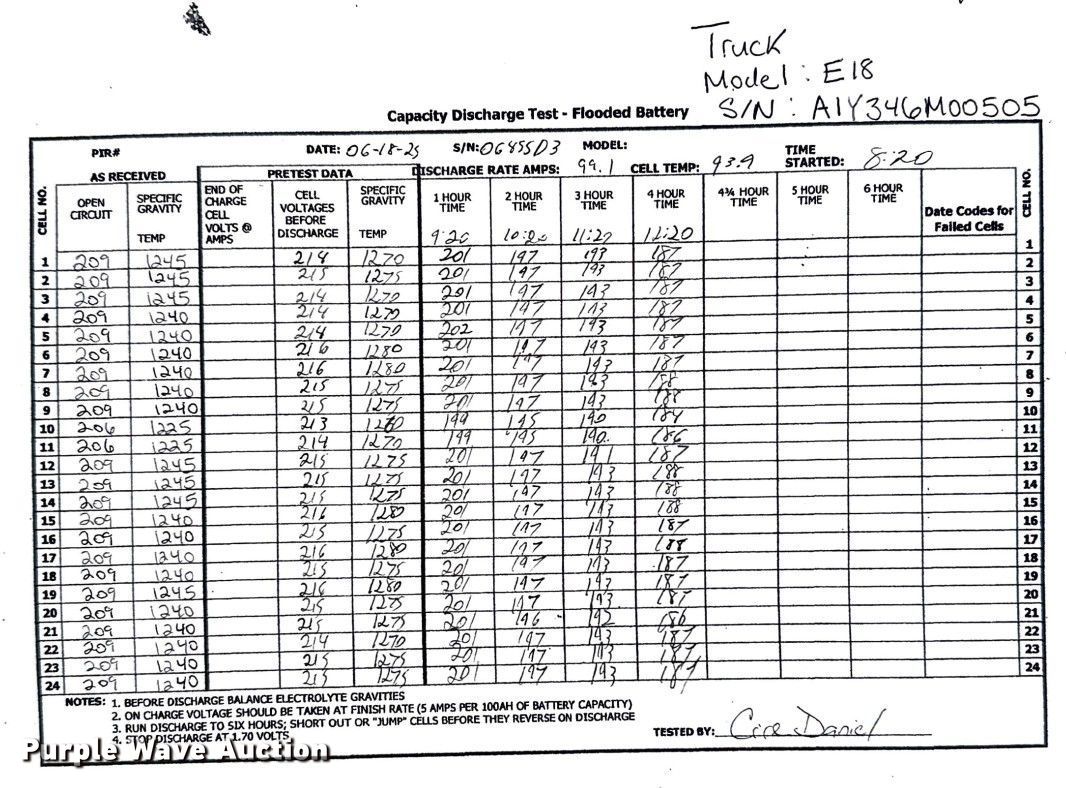 Truck
Model: E18
S/N: A1Y346M00505
Capacity Discharge Test - Flooded Battery
PIR# DATE: 06-18-25 S/N: MODEL: TIME STARTED: 8:20
AS RECEIVED PRETEST DATA DISCHARGE RATE AMPS: 99.1 CELL TEMP: 93.9
CELL NO. OPEN CIRCUIT SPECIFIC GRAVITY TEMP END OF CHARGE CELL VOLTS @ AMPS CELL VOLTAGES BEFORE DISCHARGE SPECIFIC GRAVITY TEMP 1 HOUR TIME 9:20 2 HOUR TIME 10:20 3 HOUR TIME 11:20 4 HOUR TIME 12:20 4¾ HOUR TIME 5 HOUR TIME 6 HOUR TIME Date Codes for Failed Cells CELL NO.
1 209 1245 214 1270 201 197 193 187 1
2 209 1245 215 1275 201 197 193 187 2
3 209 1245 214 1270 201 197 193 187 3
4 209 1240 214 1270 201 197 193 187 4
5 209 1240 214 1270 202 197 193 187 5
6 209 1240 216 1280 201 197 193 187 6
7 209 1240 216 1280 201 197 193 187 7
8 209 1240 215 1275 201 197 193 188 8
9 209 1240 215 1275 201 197 193 188 9
10 206 1225 213 199 195 190 184 10
11 206 1225 214 1270 199 195 190. 186 11
12 209 1245 215 1275 201 197 191 187 12
13 209 1245 215 1275 201 197 193 188 13
14 209 1245 215 1275 201 197 193 188 14
15 209 1240 216 1280 201 197 193 188 15
16 209 1240 215 1275 201 197 193 187 16
17 209 1240 216 1280 201 197 193 188 17
18 209 1240 215 1275 201 197 193 187 18
19 209 1245 216 1280 201 197 193 187 19
20 209 1240 215 1275 201 197 193 187 20
21 209 1240 215 1275 201 196 192 186 21
22 209 1240 214 1270 201 197 193 187 22
23 209 1240 215 1275 201 197 193 187 23
24 209 1240 215 1275 201 197 193 187 24
NOTES: 1. BEFORE DISCHARGE BALANCE ELECTROLYTE GRAVITIES
2. ON CHARGE VOLTAGE SHOULD BE TAKEN AT FINISH RATE (5 AMPS PER 100AH OF BATTERY CAPACITY)
3. RUN DISCHARGE TO SIX HOURS; SHORT OUT OR "JUMP" CELLS BEFORE THEY REVERSE ON DISCHARGE
4. STOP DISCHARGE AT 1.70 VOLTS
TESTED BY: Daniel
Purple Wave Auction